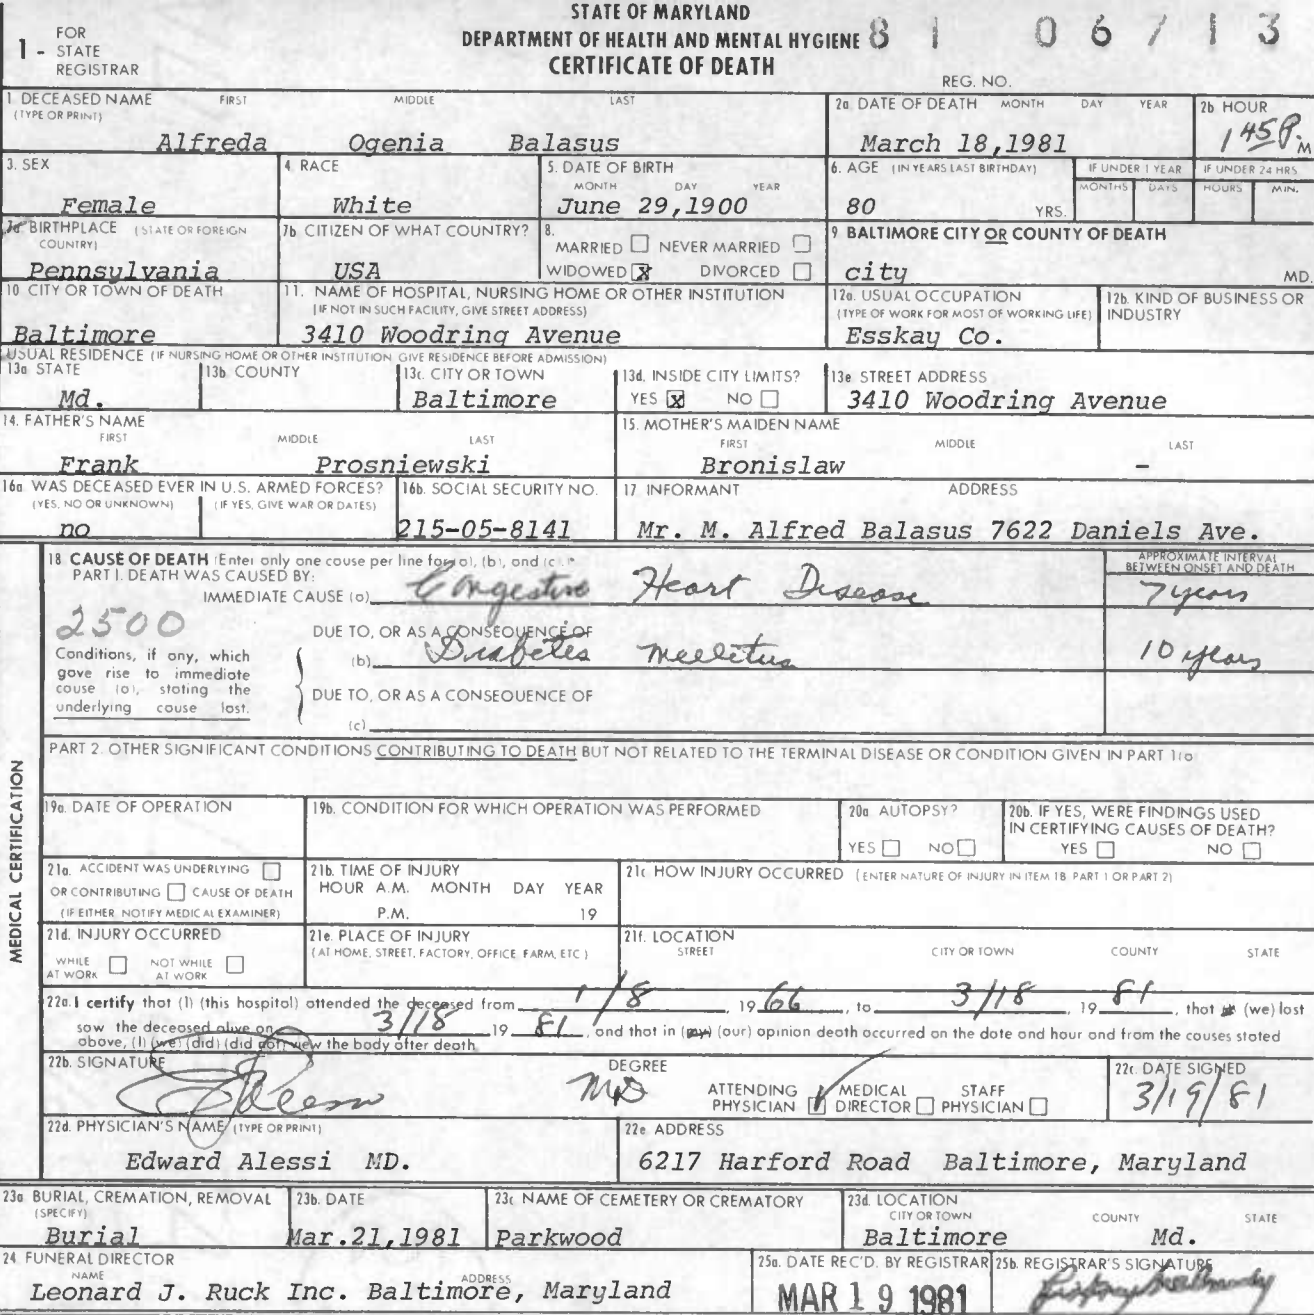 STATE OF MARYLAND
DEPARTMENT OF HEALTH AND MENTAL HYGIENE 81 06713
CERTIFICATE OF DEATH
1 - FOR STATE REGISTRAR
REG. NO.
1 DECEASED NAME (TYPE OR PRINT) FIRST MIDDLE LAST
Alfreda Ogenia Balasus
2a DATE OF DEATH MONTH DAY YEAR
March 18,1981
2b HOUR
1 45 P. M
3. SEX
Female
4 RACE
White
5. DATE OF BIRTH MONTH DAY YEAR
June 29,1900
6. AGE (IN YEARS LAST BIRTHDAY)
80 YRS.
IF UNDER 1 YEAR MONTHS DAYS
IF UNDER 24 HRS HOURS MIN.
BIRTHPLACE (STATE OR FOREIGN COUNTRY)
Pennsylvania
7b CITIZEN OF WHAT COUNTRY?
USA
8. MARRIED ☐ NEVER MARRIED ☐
WIDOWED ☒ DIVORCED ☐
9 BALTIMORE CITY OR COUNTY OF DEATH
city MD.
10 CITY OR TOWN OF DEATH
Baltimore
11. NAME OF HOSPITAL, NURSING HOME OR OTHER INSTITUTION
(IF NOT IN SUCH FACILITY, GIVE STREET ADDRESS)
3410 Woodring Avenue
12a. USUAL OCCUPATION
(TYPE OF WORK FOR MOST OF WORKING LIFE)
Esskay Co.
12b. KIND OF BUSINESS OR INDUSTRY
USUAL RESIDENCE (IF NURSING HOME OR OTHER INSTITUTION GIVE RESIDENCE BEFORE ADMISSION)
13a STATE
Md.
13b. COUNTY
13c. CITY OR TOWN
Baltimore
13d. INSIDE CITY LIMITS?
YES ☒ NO ☐
13e STREET ADDRESS
3410 Woodring Avenue
14. FATHER'S NAME
FIRST MIDDLE LAST
Frank Prosniewski
15. MOTHER'S MAIDEN NAME
FIRST MIDDLE LAST
Bronislaw -
16a WAS DECEASED EVER IN U.S. ARMED FORCES?
(YES, NO OR UNKNOWN) (IF YES, GIVE WAR OR DATES)
no
16b. SOCIAL SECURITY NO.
215-05-8141
17 INFORMANT ADDRESS
Mr. M. Alfred Balasus 7622 Daniels Ave.
MEDICAL CERTIFICATION
18 CAUSE OF DEATH (Enter only one cause per line for (a), (b), and (c).)
PART I. DEATH WAS CAUSED BY:
APPROXIMATE INTERVAL BETWEEN ONSET AND DEATH
IMMEDIATE CAUSE (a) Congestive Heart Disease 7 years
2500
DUE TO, OR AS A CONSEQUENCE OF
(b) Diabetes Mellitus 10 years
Conditions, if any, which gave rise to immediate cause (a), stating the underlying cause last.
DUE TO, OR AS A CONSEQUENCE OF
(c)
PART 2. OTHER SIGNIFICANT CONDITIONS CONTRIBUTING TO DEATH BUT NOT RELATED TO THE TERMINAL DISEASE OR CONDITION GIVEN IN PART 1(a)
19a. DATE OF OPERATION
19b. CONDITION FOR WHICH OPERATION WAS PERFORMED
20a AUTOPSY?
YES ☐ NO ☐
20b. IF YES, WERE FINDINGS USED IN CERTIFYING CAUSES OF DEATH?
YES ☐ NO ☐
21a. ACCIDENT WAS UNDERLYING ☐
OR CONTRIBUTING ☐ CAUSE OF DEATH
(IF EITHER, NOTIFY MEDICAL EXAMINER)
21b. TIME OF INJURY
HOUR A.M. MONTH DAY YEAR
P.M. 19
21c HOW INJURY OCCURRED (ENTER NATURE OF INJURY IN ITEM 18 PART 1 OR PART 2)
21d. INJURY OCCURRED
WHILE AT WORK ☐ NOT WHILE AT WORK ☐
21e. PLACE OF INJURY
(AT HOME, STREET, FACTORY, OFFICE, FARM, ETC.)
21f. LOCATION
STREET CITY OR TOWN COUNTY STATE
22a. I certify that (I) (this hospital) attended the deceased from 1/8 1966, to 3/18, 1981, that (we) last
saw the deceased alive on 3/18 1981, and that in (my) (our) opinion death occurred on the date and hour and from the causes stated
above, (I) (we) (did) (did not) view the body after death
22b. SIGNATURE
E Alessi
DEGREE
MD
ATTENDING PHYSICIAN ☑ MEDICAL DIRECTOR ☐ STAFF PHYSICIAN ☐
22c. DATE SIGNED
3/19/81
22d. PHYSICIAN'S NAME (TYPE OR PRINT)
Edward Alessi MD.
22e ADDRESS
6217 Harford Road Baltimore, Maryland
23a BURIAL, CREMATION, REMOVAL (SPECIFY)
Burial
23b. DATE
Mar.21,1981
23c NAME OF CEMETERY OR CREMATORY
Parkwood
23d. LOCATION
CITY OR TOWN COUNTY STATE
Baltimore Md.
24 FUNERAL DIRECTOR
NAME ADDRESS
Leonard J. Ruck Inc. Baltimore, Maryland
25a. DATE REC'D. BY REGISTRAR
MAR 19 1981
25b. REGISTRAR'S SIGNATURE